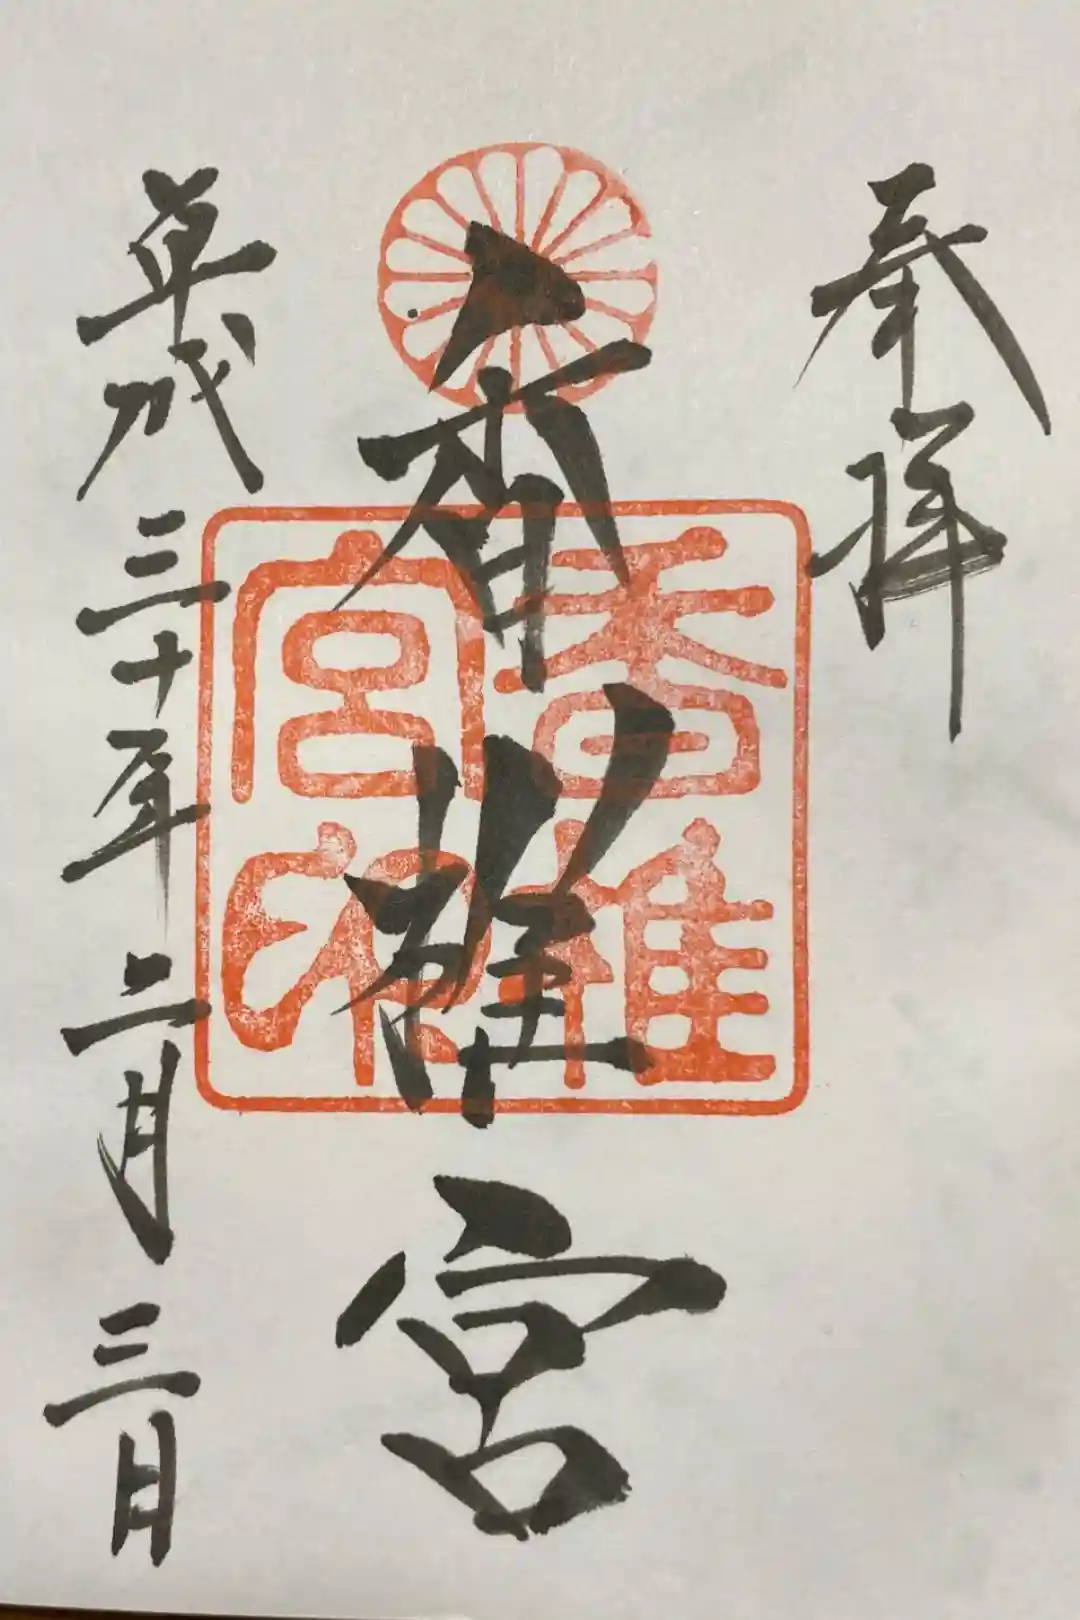 奉拝
香椎宮
香椎宮印
平成三十年二月三日